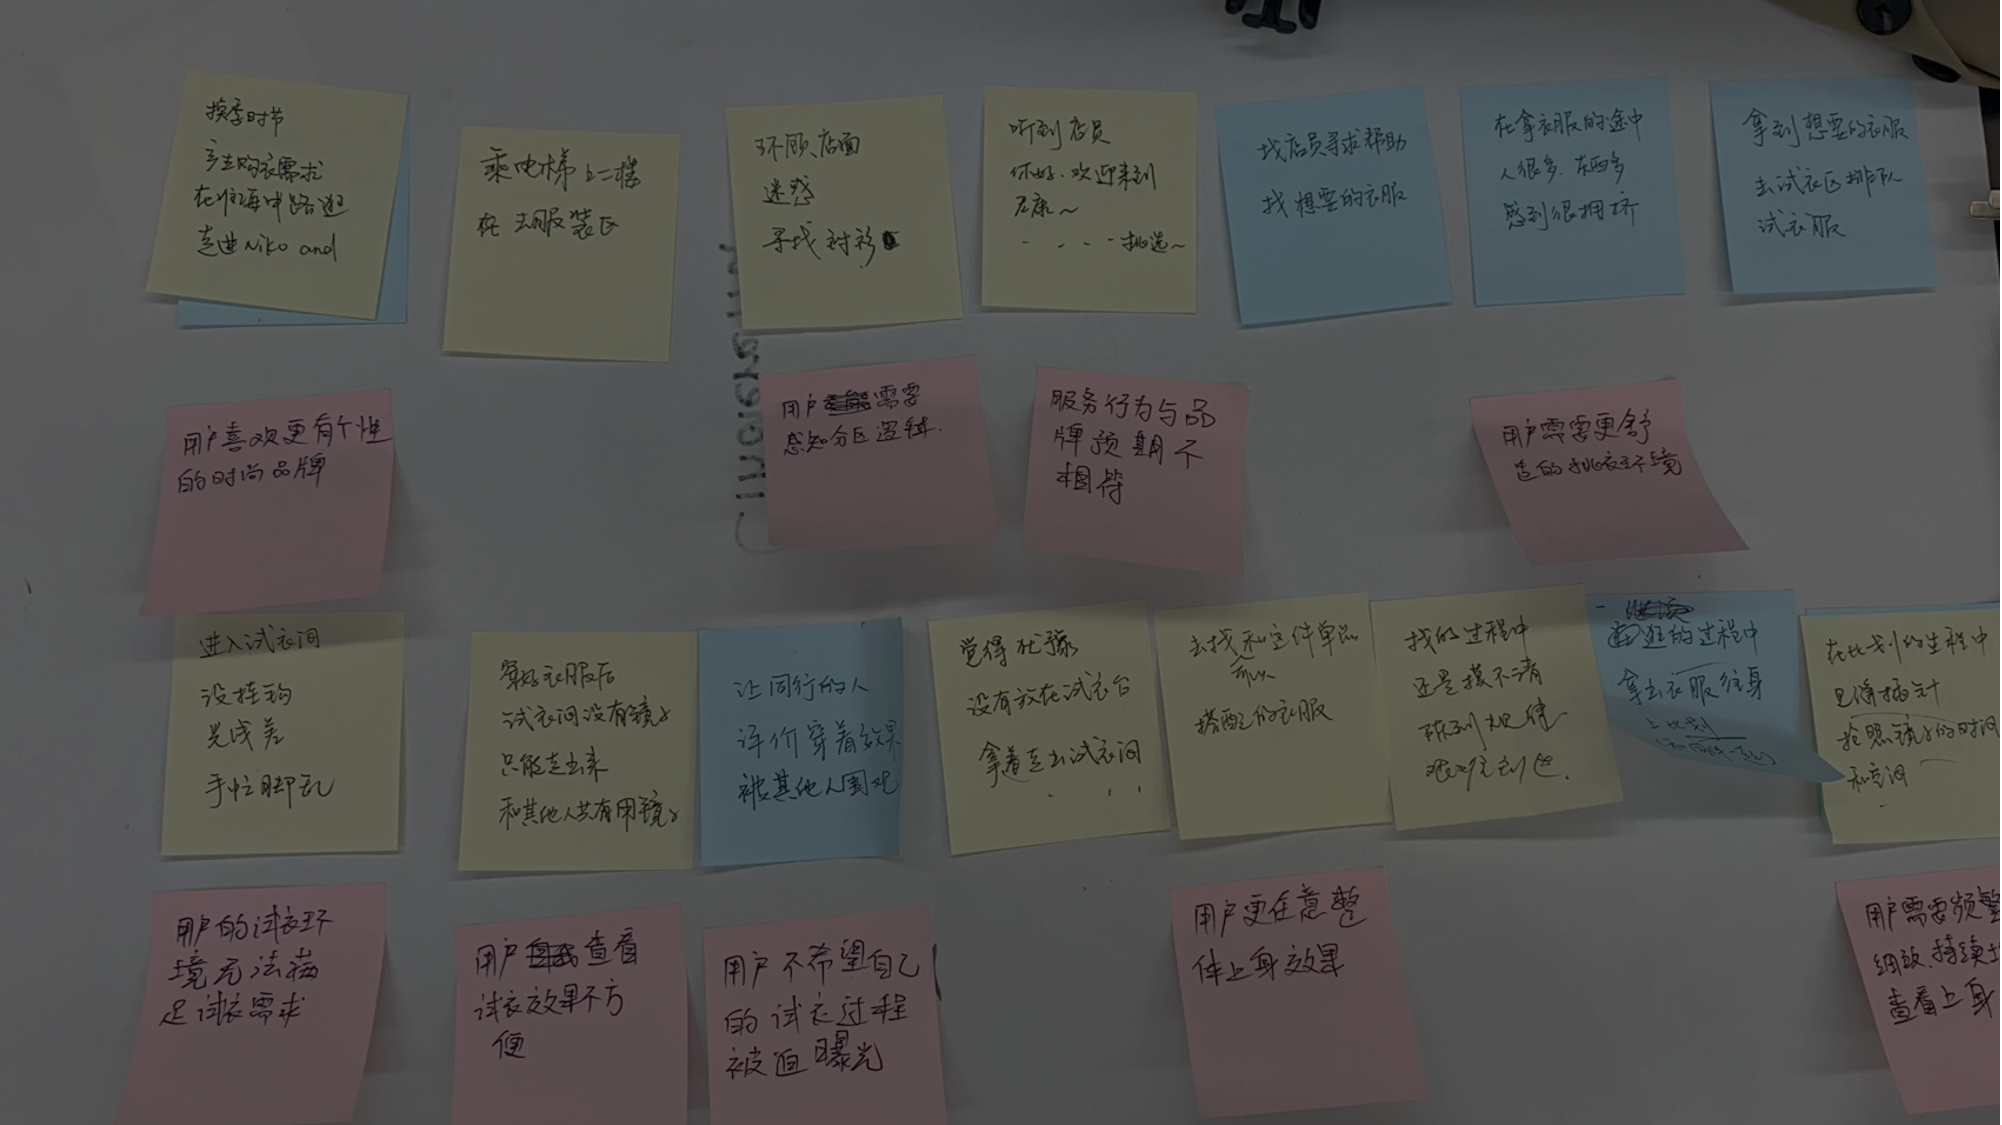 换季时节
产生购衣需求
在淮海中路逛
走进Niko and
乘电梯上二楼
在 去服装区
环顾店面
迷惑
寻找衬衫
听到店员
你好，欢迎来到
尼康～
····挑选～
找店员寻求帮助
找想要的衣服
在拿衣服的途中
人很多，东西多
感到很拥挤
拿到想要的衣服
去试衣区排队
试衣服
用户喜欢更有个性
的时尚品牌
用户需要
感知分区逻辑.
服务行为与品
牌预期不
相符
用户需要更舒
适的挑衣环境
进入试衣间
没挂钩
手忙脚乱
穿好衣服后
试衣间没有镜子
只能走出来
和其他人共有用镜子
让同行的人
评价穿着效果
被其他人围观
觉得犹豫
没有放在试衣台
拿着走出试衣间
去找和这件单品
可以
搭配的衣服
找的过程中
还是摸不清
逛的过程中
拿出衣服往身
上比划
在比划的过程中
见缝插针
抢照镜子的时间
和空间
用户的试衣环
境无法满
足试衣需求
用户查看
试衣效果不方
便
用户不希望自己
的试衣过程
被迫曝光
用户更在意整
体上身效果
用户需要频繁
细致、持续
查看上身